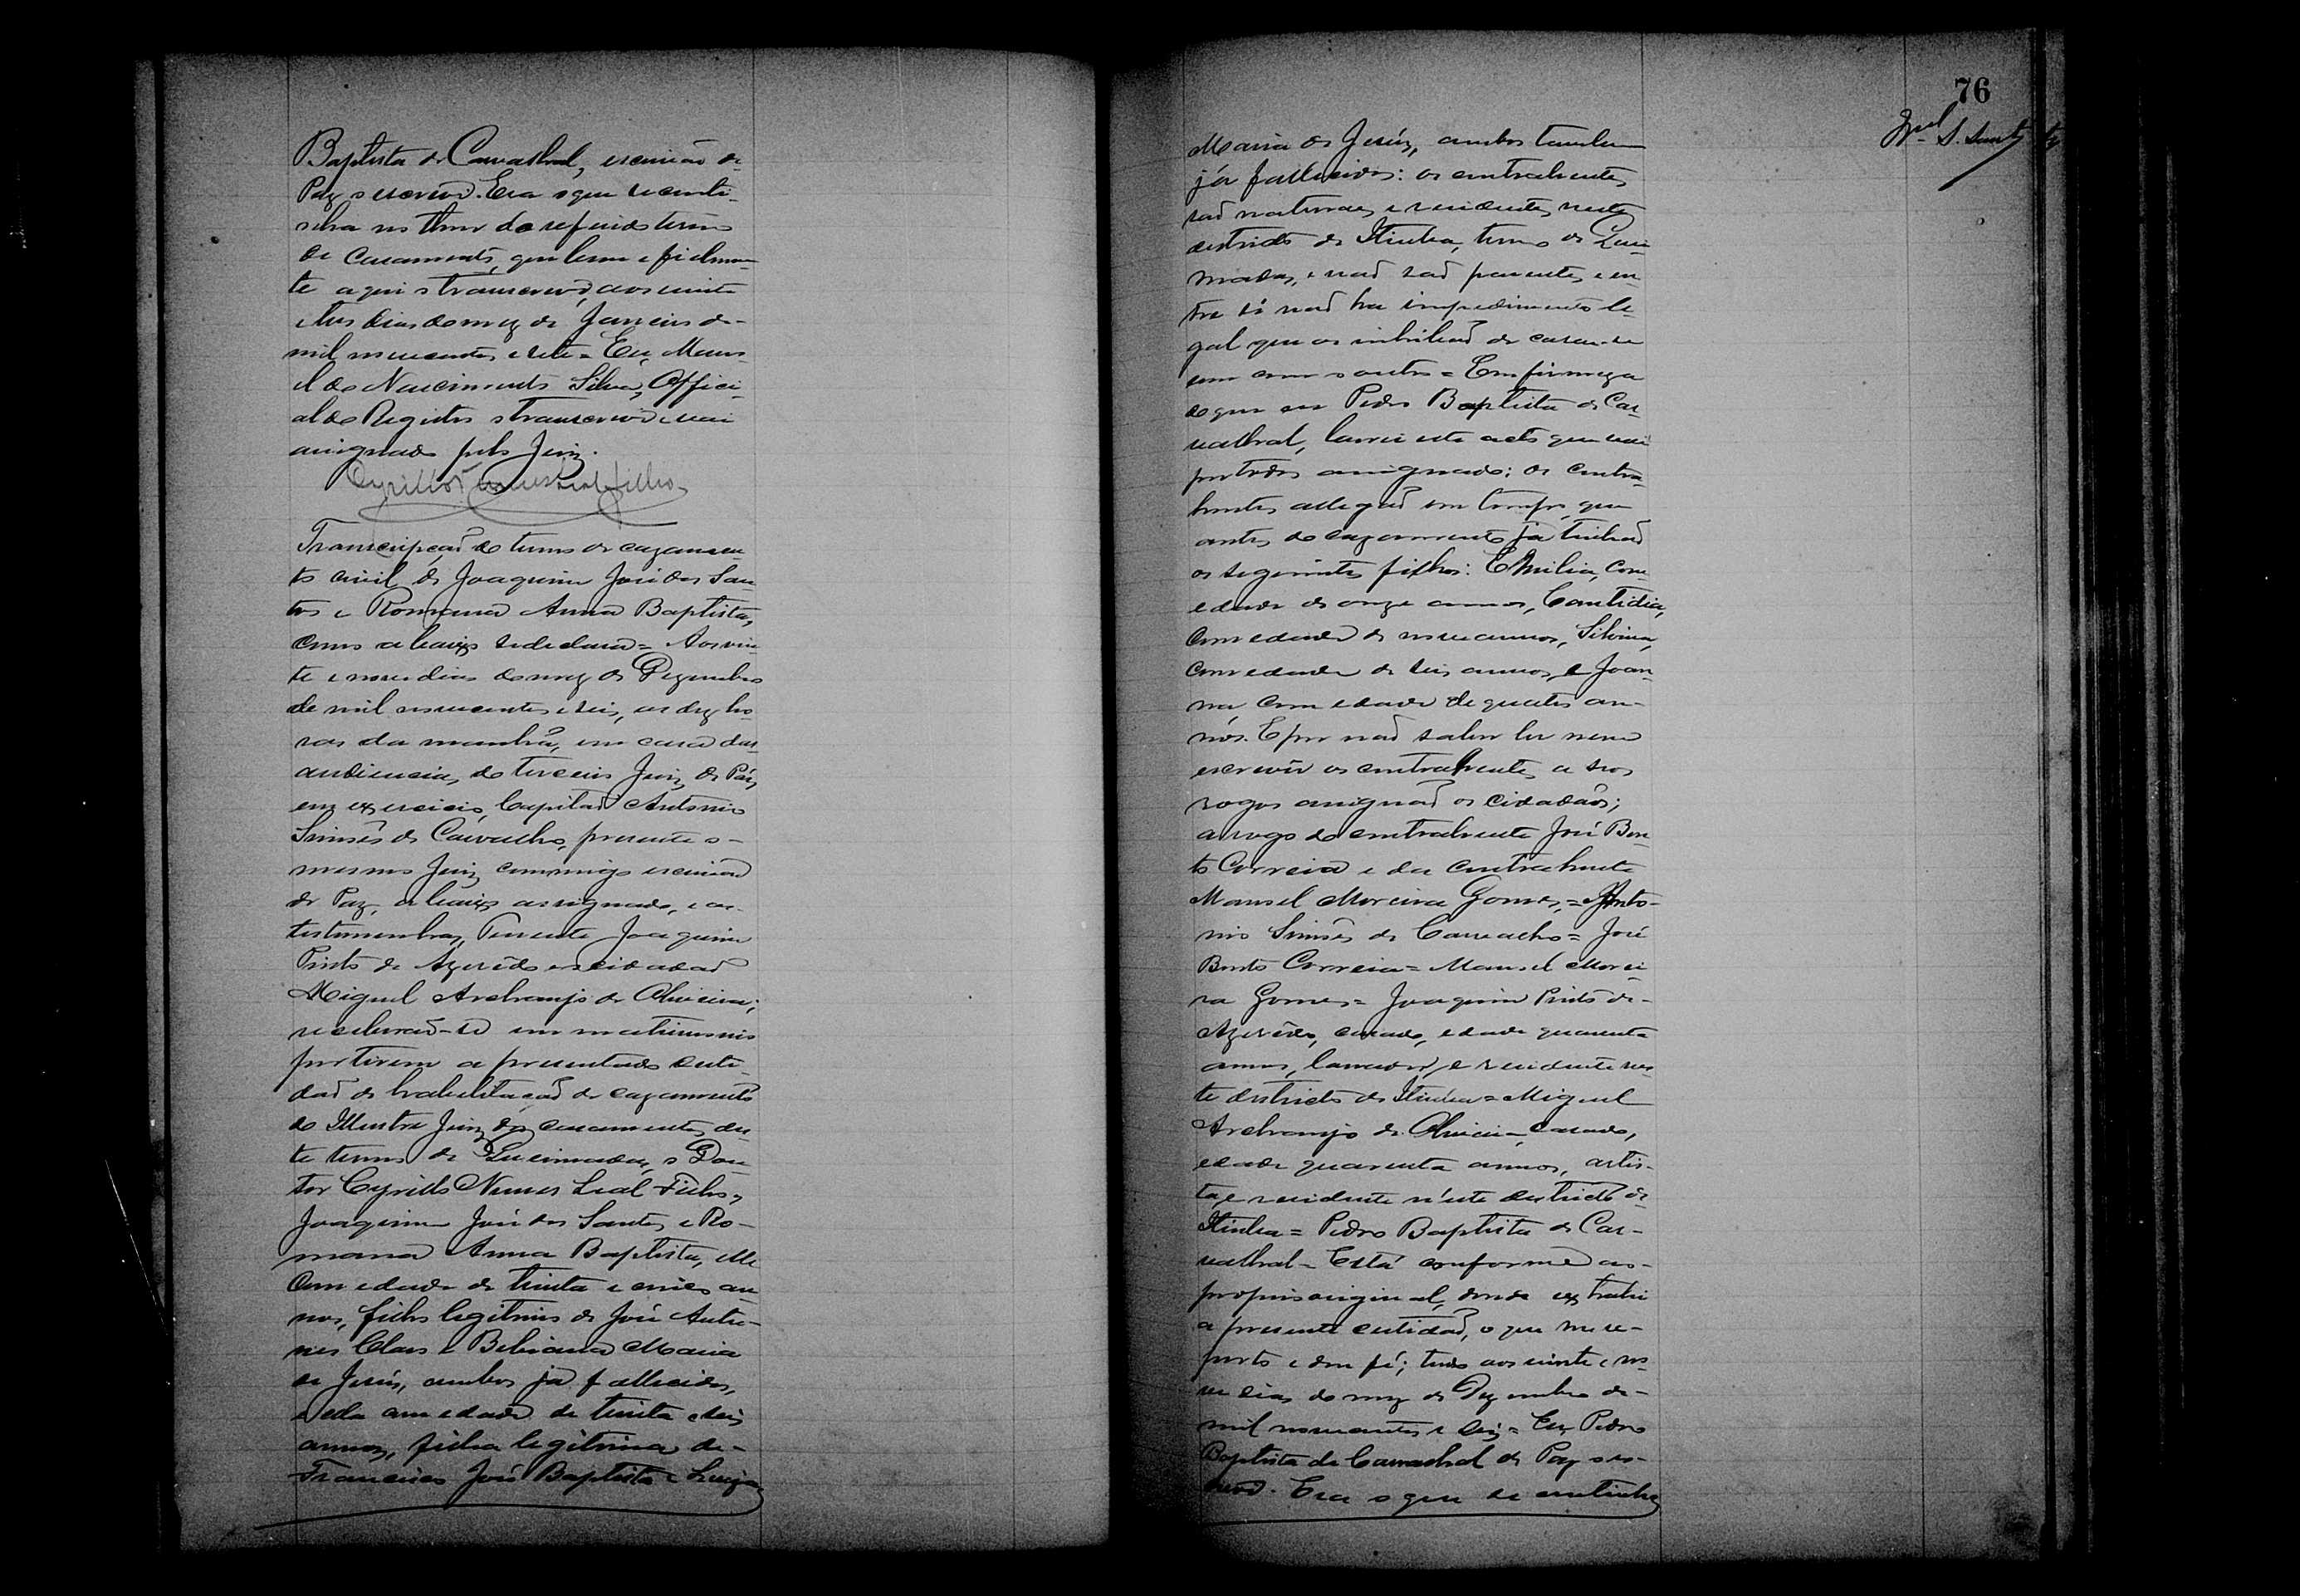 Baptista de Carvalhal, escrivão de
Paz o escrevi. Era o que se conti-
nha no theor do referido termo
de casamento, que bem e fielmen-
te aqui o transcrevo, aos vinte
e tres dias do mez de Janeiro de
mil novecentos e sete = Eu, Mano-
el do Nascimento Silva, Offici-
al do Registro o transcrevi e vai
assignado pelo Juiz.
Cyrillo Nunes Leal Filho
Transcripção do termo de cazamen-
to civil de Joaquim José dos San-
tos e Romana Anna Baptista,
como abaixo se declara = Aos vin-
te e nove dias do mez de Dezembro
de mil novecentos e seis, as dez ho-
ras da manhã, em casa das
audiencias, do terceiro Juiz de Páz,
em exercicio, Capitão Antonio
Simões de Carvalho, presente o
mesmo Juiz commigo escrivão
de Paz, abaixo assignado, e as
testemunhas, Tenente Joaquim
Pinto de Azevêdo e o cidadão
Miguel Archanjo de Oliveira;
receberão-se em matrimonio
por terem apresentado certi-
dão de habelitação de cazamento
do Illustre Juiz dos casamentos, des-
te termo de Queimadas, o Dou-
tor Cyrillo Nunes Leal Filho,
Joaquim José dos Santos e Ro-
mana Anna Baptista, elle
com edade de trinta e cinco an-
nos, filho legitimo de José Antu-
nes e Bibiana Maria
de Jesús, ambos já fallecidos,
e ella com edade de trinta e seis
annos, filha legitima de
Francisco José Baptista e Luiza
76
Maria de Jesús, ambos tambem
já fallecidos: os contrahentes
são naturaes e residentes neste
districto de Itiuba, termo de Quei-
madas, e não são parentes, e en-
tre si não ha impedimento le-
gal que os inhibão de casar-se
um com o outro = Em firmeza
do que eu Pedro Baptista de Car-
valhal, lavrei este acto que vai
por todos assignado: os contra-
hentes allegão em tempo, que
antes do cazamento já tinhão
os seguintes filhos: Emilia, com
edade de onze annos, Cantidia,
com edade de nove annos, Silvina,
com edade de seis annos, e Joan-
na, com edade de quatro an-
nos. E por não saber ler nem
escrever os contrahentes, a seos
rogos assignão os cidadãos;
a rogo do contrahente José Ben-
to Correia e da contrahente
Manoel Moreira Gomes, = Anto-
nio Simões de Carvalho = José
Bento Correia = Manoel Morei-
ra Gomes = Joaquim Pinto de
Azevêdo, casado, edade quarenta
annos, lavrador, e residente nes-
te districto de Itiuba = Miguel
Archanjo de Oliveira, casado,
edade quarenta annos, artis-
ta, e residente n'este districto de
Itiuba = Pedro Baptista de Car-
valhal = Está conforme ao
proprio original, donde extrahi
a presente certidão, o que me re-
porto e dou fé; tudo aos vinte e no-
ve dias do mez de Dezembro de
mil novecentos e seis = Eu, Pedro
Baptista de Carvalhal de Paz o es-
crevi. Era o que se continha